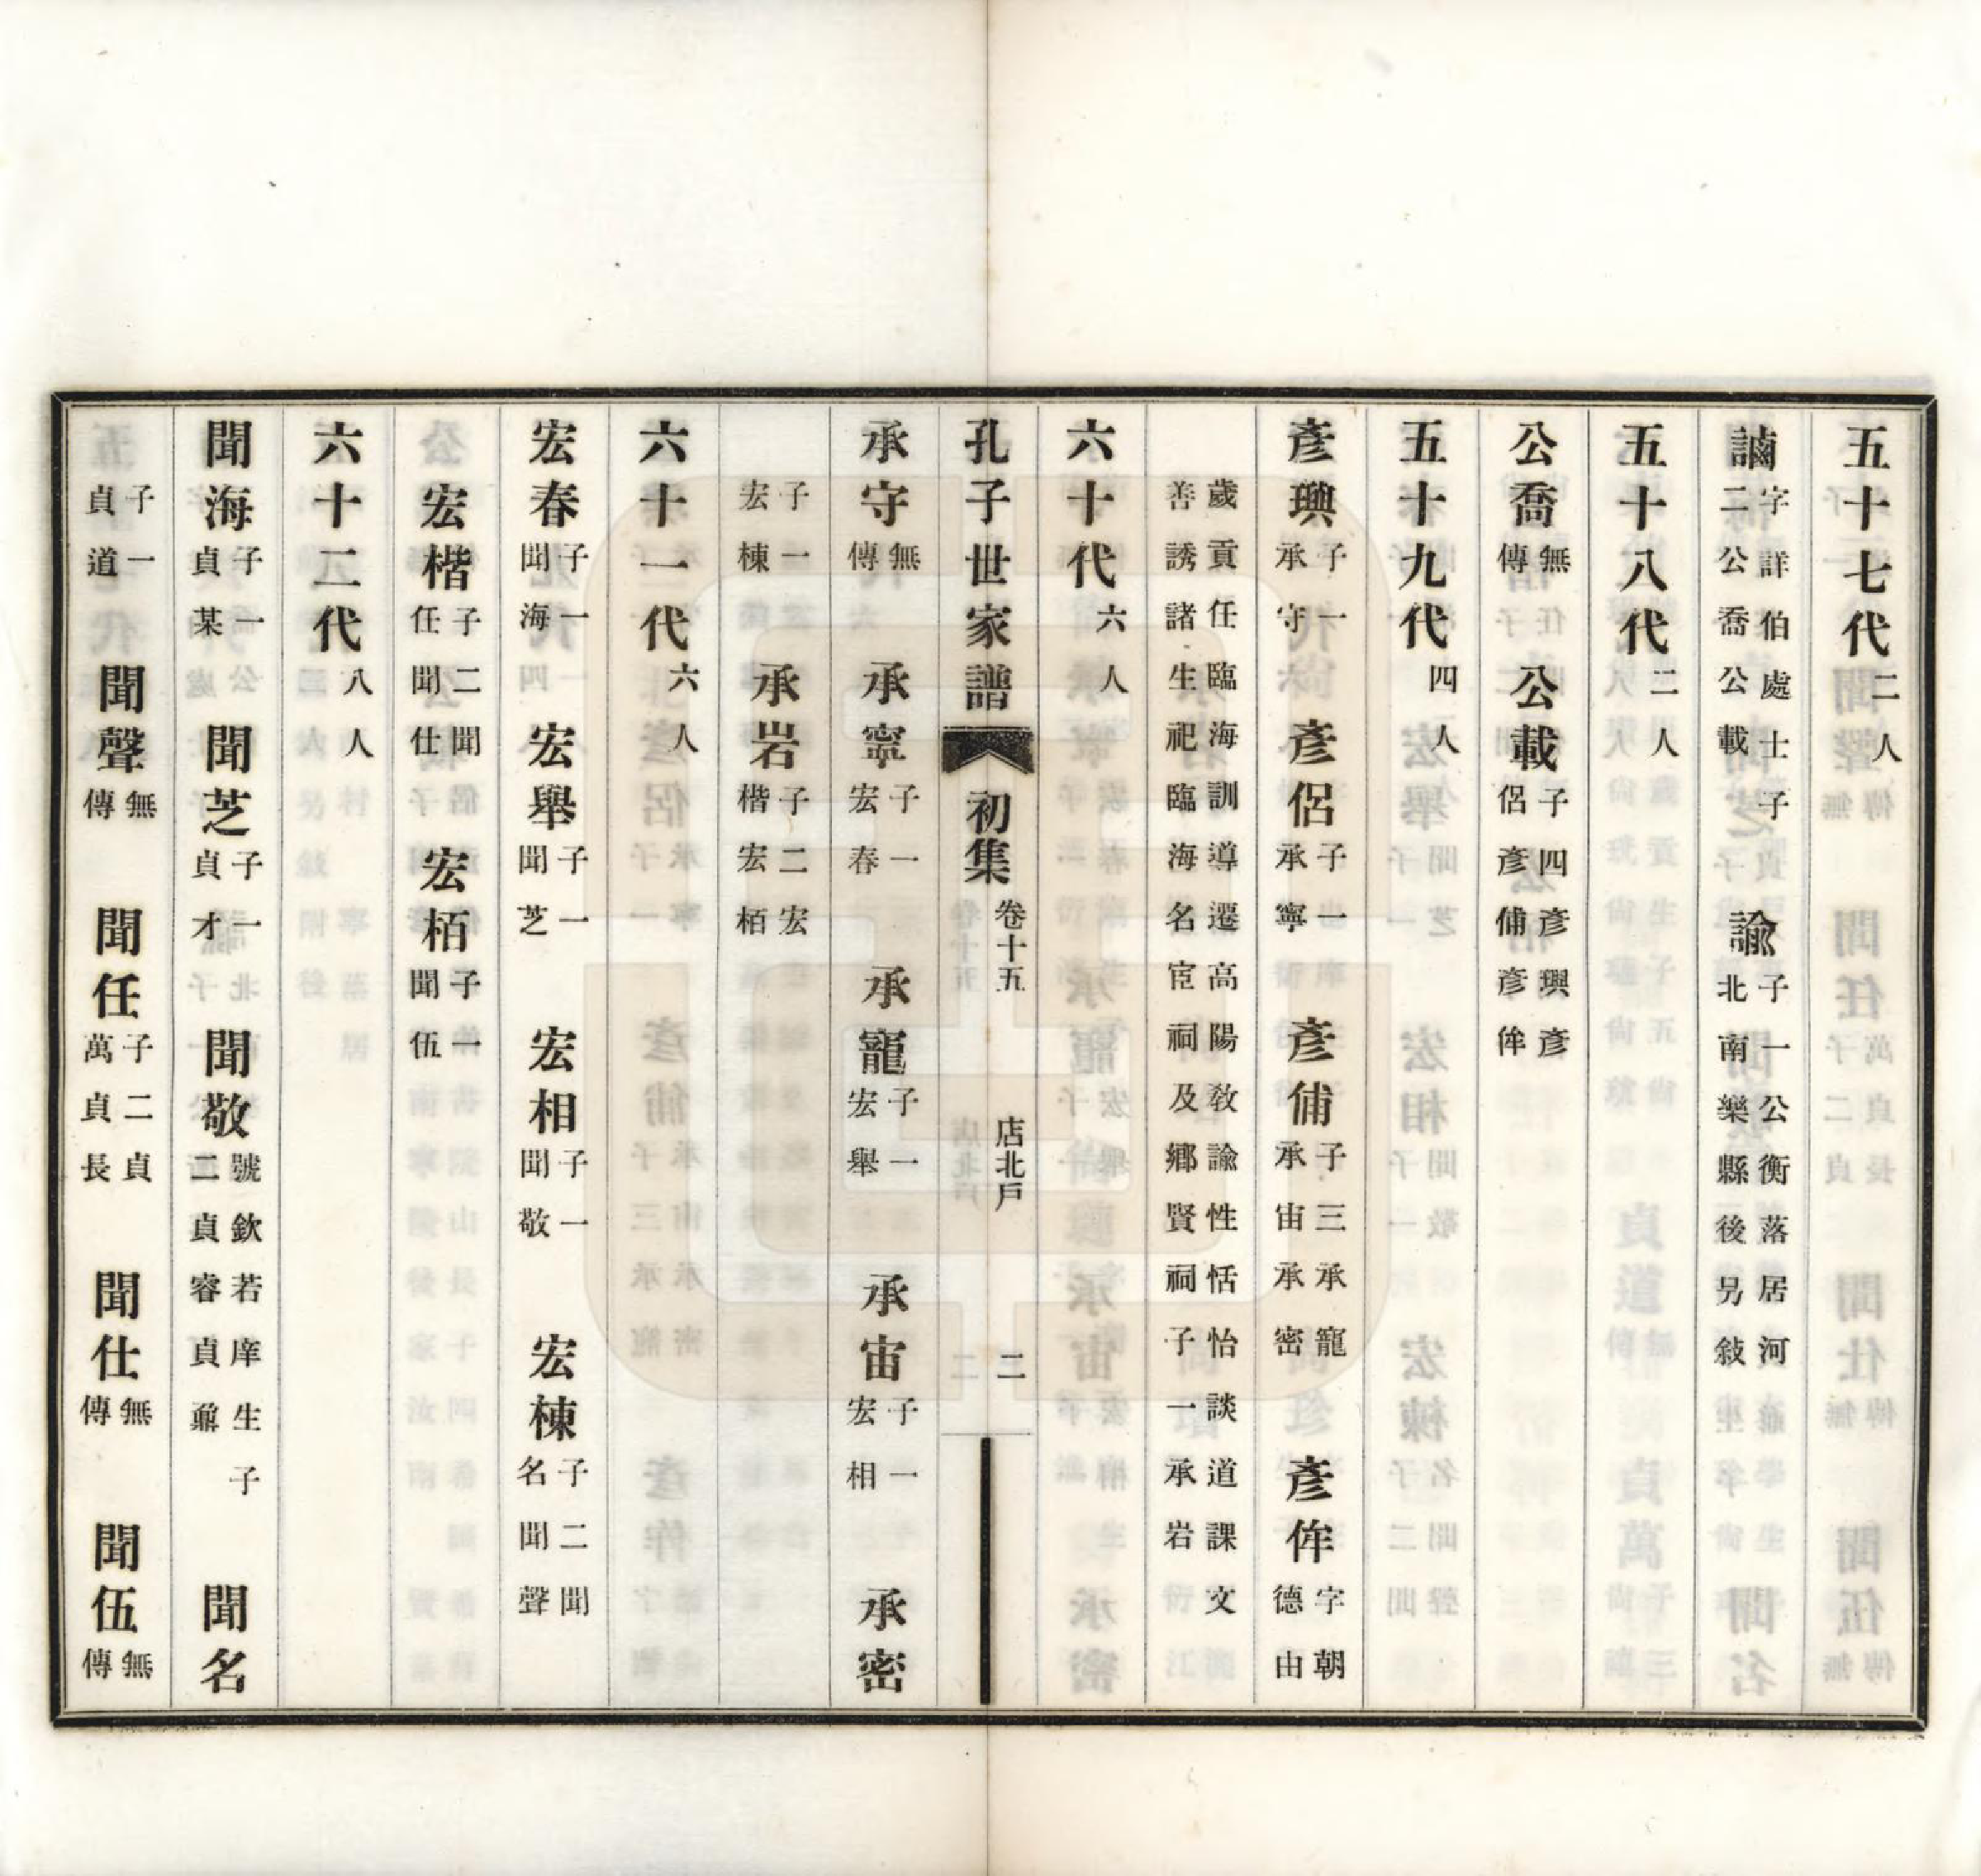 五十七代二人
䜖字詳伯處士子二公喬公載 諭子一公衡落居河北南樂縣後另敍
五十八代二人
公喬無傳 公載子四彥璵彥侶彥俌彥侔
五十九代四人
彥璵子一承守 彥侶子一承寧 彥俌子三承寵承宙承密 彥侔字朝德由
歲貢任臨海訓導遷高陽敎諭性恬怡談道課文善誘諸生祀臨海名宦祠及鄉賢祠子一承岩
六十代六人
孔子世家譜 初集 卷十五 店北戶 二
承守無傳 承寧子一宏春 承寵子一宏舉 承宙子一宏相 承密
子一宏棟 承岩子二宏楷宏栢
六十一代六人
宏春子一聞海 宏舉子一聞芝 宏相子一聞敬 宏棟子二聞名聞聲
宏楷子二聞任聞仕 宏栢子一聞伍
六十二代八人
聞海子一貞某 聞芝子一貞才 聞敬號欽若庠生子二貞睿貞鼐 聞名
子一貞道 聞聲無傳 聞任子二貞萬貞長 聞仕無傳 聞伍無傳